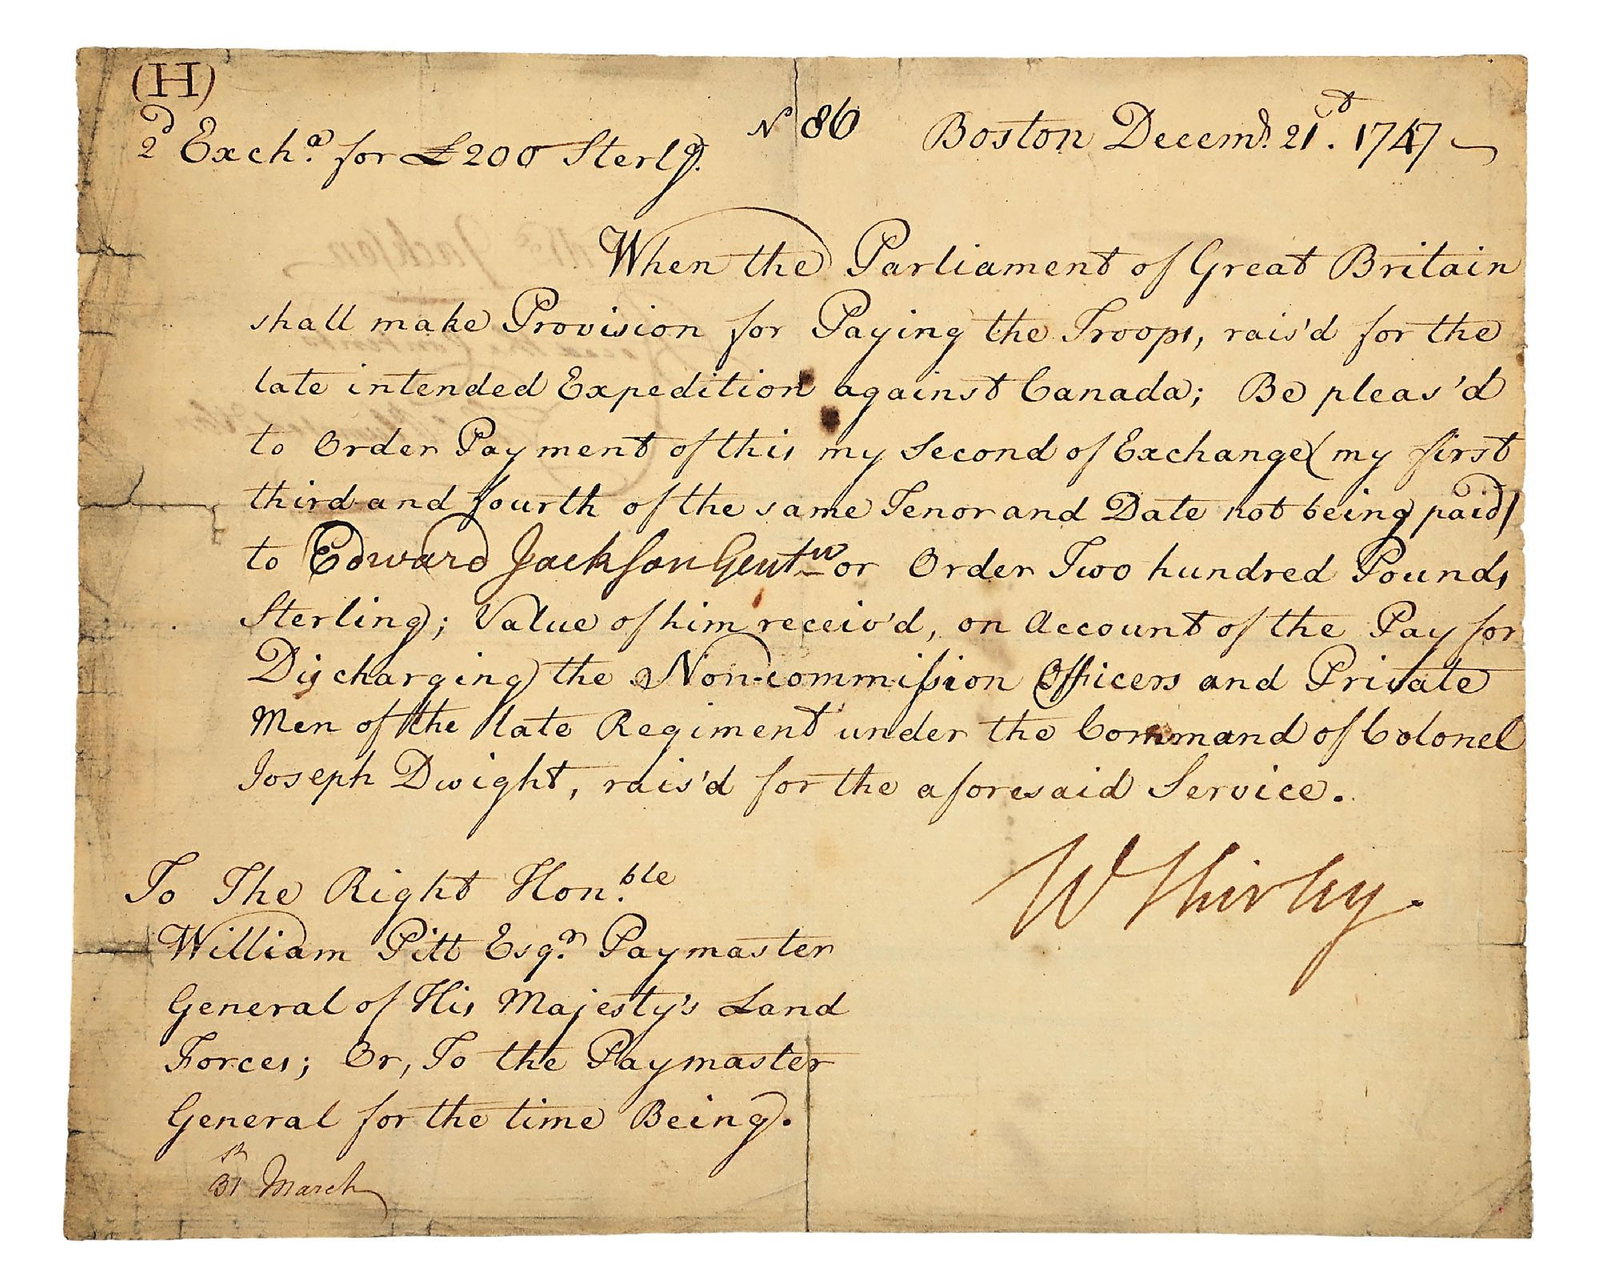 (H)
2d Excha. for £200 Sterlg. No 86 Boston Decemb. 21st. 1747
When the Parliament of Great Britain
shall make Provision for Paying the Troops, rais'd for the
late intended Expedition against Canada; Be pleas'd
to Order Payment of this my Second of Exchange (my first
third and fourth of the same Tenor and Date not being paid)
to Edward Jackson Gentn or Order Two hundred Pounds
Sterling; Value of him receiv'd, on Account of the Pay for
Discharging the Non-commission Officers and Private
Men of the late Regiment under the Command of Colonel
Joseph Dwight, rais'd for the aforesaid Service.
W Shirley.
To The Right Hon.ble
William Pitt Esqr. Paymaster
General of His Majesty's Land
Forces; Or, To the Paymaster
General for the time Being.
31 March